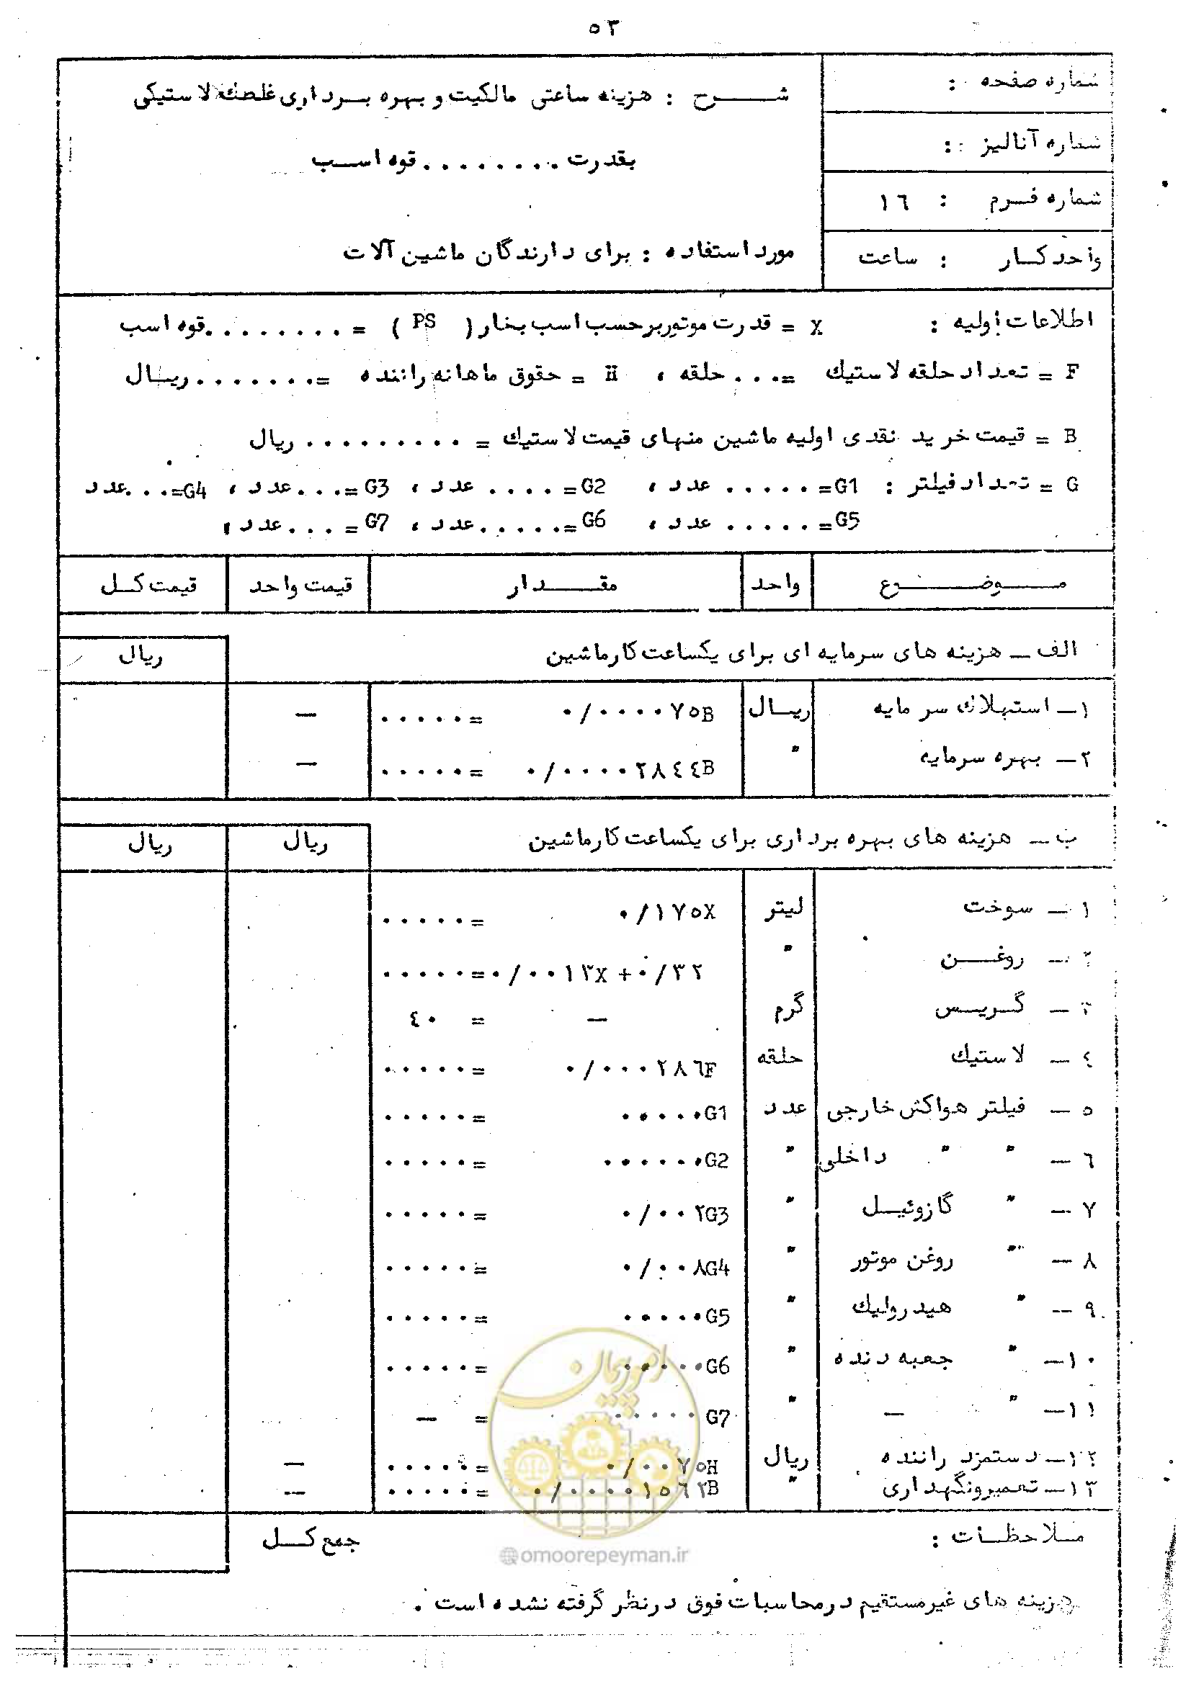 ٥٣
شماره صفحه :
شماره آنالیز :
شماره فرم : ١٦
واحد کار : ساعت
شرح : هزینه ساعتی مالکیت و بهره برداری غلطک لاستیکی
بقدرت ........ قوه اسب
مورد استفاده : برای دارندگان ماشین آلات
اطلاعات اولیه : X = قدرت موتور برحسب اسب بخار ( PS ) = ........ قوه اسب
F = تعداد حلقه لاستیک = ... حلقه ، H = حقوق ماهانه راننده = ....... ریال
B = قیمت خرید نقدی اولیه ماشین منهای قیمت لاستیک = ......... ریال
G = تعداد فیلتر : G1= ...... عدد ، G2= .... عدد ، G3= ... عدد ، G4= ... عدد
G5= ...... عدد ، G6= ...... عدد ، G7= ... عدد ،
موضوع واحد مقدار قیمت واحد قیمت کل
الف ـ هزینه های سرمایه ای برای یکساعت کار ماشین ریال
١ـ استهلاک سرمایه ریال ٠/٠٠٠٠٧٥B = ..... —
٢ـ بهره سرمایه " ٠/٠٠٠٠٢٨٤٤B = ..... —
ب ـ هزینه های بهره برداری برای یکساعت کار ماشین ریال ریال
١ ـ سوخت لیتر ٠/١٧٥X = .....
٢ ـ روغن " ٠/٠٠١٣X + ٠/٣٢ = .....
٣ ـ گریس گرم — = ٤٠
٤ ـ لاستیک حلقه ٠/٠٠٠٢٨٦F = .....
٥ ـ فیلتر هواکش خارجی عدد .....G1 = .....
٦ ـ " " داخلی " ......G2 = .....
٧ ـ " گازوئیل " ٠/٠٠٢G3 = .....
٨ ـ " روغن موتور " ٠/٠٠٨G4 = .....
٩ ـ " هیدرولیک " .....G5 = .....
١٠ـ " جعبه دنده " .....G6 = .....
١١ـ " — " .....G7 = —
١٢ـ دستمزد راننده ریال ٠/٠٠٧٥H = ..... —
١٣ـ تعمیر و نگهداری " ٠/٠٠٠٠١٥٦٢B = ..... —
ملاحظات : جمع کل
هزینه های غیرمستقیم در محاسبات فوق در نظر گرفته نشده است .
امور پیمان
@omoorepeyman.ir